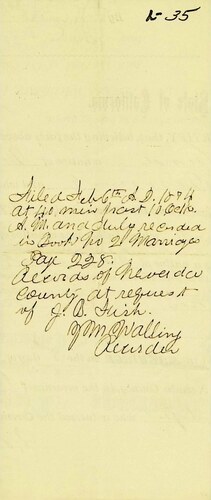 L-35
Filed Feb 6th A.D. 1874
at 40 min past 10 Oclk.
A.M. and duly recorded
in Book No 2 Marriages
Page 228.
Records of Nevada
County at request
of J. B. Fish.
Recorder